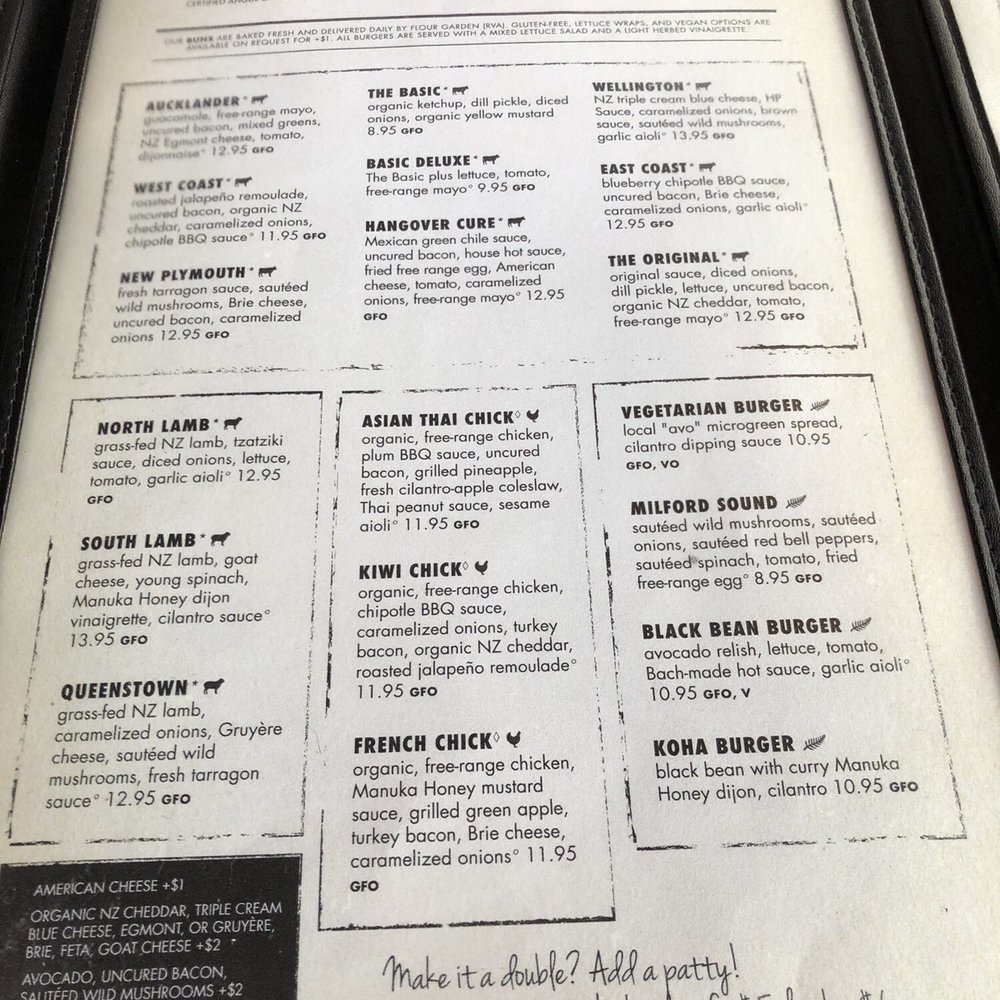 CERTIFIED
OUR BUNS ARE BAKED FRESH AND DELIVERED DAILY BY FLOUR GARDEN (RVA). GLUTEN-FREE, LETTUCE WRAPS, AND VEGAN OPTIONS ARE
AVAILABLE ON REQUEST FOR +$1. ALL BURGERS ARE SERVED WITH A MIXED LETTUCE SALAD AND A LIGHT HERBED VINAIGRETTE.
AUCKLANDER*
guacamole, free-range mayo,
uncured bacon, mixed greens,
NZ Egmont cheese, tomato,
dijonnaise° 12.95 GFO
WEST COAST*
roasted jalapeño remoulade,
uncured bacon, organic NZ
cheddar, caramelized onions,
chipotle BBQ sauce° 11.95 GFO
NEW PLYMOUTH*
fresh tarragon sauce, sautéed
wild mushrooms, Brie cheese,
uncured bacon, caramelized
onions 12.95 GFO
THE BASIC*
organic ketchup, dill pickle, diced
onions, organic yellow mustard
8.95 GFO
BASIC DELUXE*
The Basic plus lettuce, tomato,
free-range mayo° 9.95 GFO
HANGOVER CURE*
Mexican green chile sauce,
uncured bacon, house hot sauce,
fried free range egg, American
cheese, tomato, caramelized
onions, free-range mayo° 12.95
GFO
WELLINGTON*
NZ triple cream blue cheese, HP
Sauce, caramelized onions, brown
sauce, sautéed wild mushrooms,
garlic aioli° 13.95 GFO
EAST COAST*
blueberry chipotle BBQ sauce,
uncured bacon, Brie cheese,
caramelized onions, garlic aioli°
12.95 GFO
THE ORIGINAL*
original sauce, diced onions,
dill pickle, lettuce, uncured bacon,
organic NZ cheddar, tomato,
free-range mayo° 12.95 GFO
NORTH LAMB*
grass-fed NZ lamb, tzatziki
sauce, diced onions, lettuce,
tomato, garlic aioli° 12.95
GFO
SOUTH LAMB*
grass-fed NZ lamb, goat
cheese, young spinach,
Manuka Honey dijon
vinaigrette, cilantro sauce°
13.95 GFO
QUEENSTOWN*
grass-fed NZ lamb,
caramelized onions, Gruyère
cheese, sautéed wild
mushrooms, fresh tarragon
sauce° 12.95 GFO
ASIAN THAI CHICK◊
organic, free-range chicken,
plum BBQ sauce, uncured
bacon, grilled pineapple,
fresh cilantro-apple coleslaw,
Thai peanut sauce, sesame
aioli° 11.95 GFO
KIWI CHICK◊
organic, free-range chicken,
chipotle BBQ sauce,
caramelized onions, turkey
bacon, organic NZ cheddar,
roasted jalapeño remoulade°
11.95 GFO
FRENCH CHICK◊
organic, free-range chicken,
Manuka Honey mustard
sauce, grilled green apple,
turkey bacon, Brie cheese,
caramelized onions° 11.95
GFO
VEGETARIAN BURGER
local "avo" microgreen spread,
cilantro dipping sauce 10.95
GFO, VO
MILFORD SOUND
sautéed wild mushrooms, sautéed
onions, sautéed red bell peppers,
sautéed spinach, tomato, fried
free-range egg° 8.95 GFO
BLACK BEAN BURGER
avocado relish, lettuce, tomato,
Bach-made hot sauce, garlic aioli°
10.95 GFO, V
KOHA BURGER
black bean with curry Manuka
Honey dijon, cilantro 10.95 GFO
AMERICAN CHEESE +$1
ORGANIC NZ CHEDDAR, TRIPLE CREAM
BLUE CHEESE, EGMONT, OR GRUYÈRE,
BRIE, FETA, GOAT CHEESE +$2
AVOCADO, UNCURED BACON,
SAUTÉED WILD MUSHROOMS +$2
Make it a double? Add a patty!